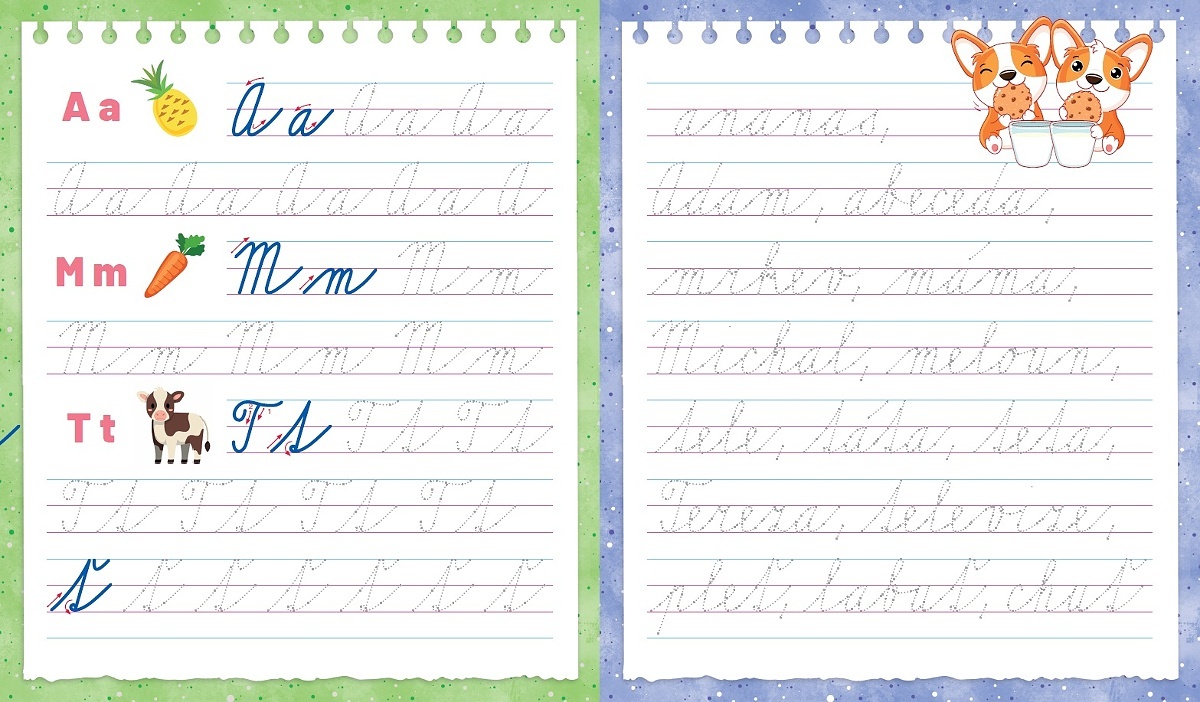 A a A a A a A a
A a A a A a A a A
M m M m M m
M m M m M m
T t T t T t T t
T t T t T t T t
ť ť ť ť ť ť ť
ananas,
Adam, abeceda,
mrkev, máma,
Michal, meloun,
tele, táta, teta,
Tereza, televize,
pleť, labuť, chuť